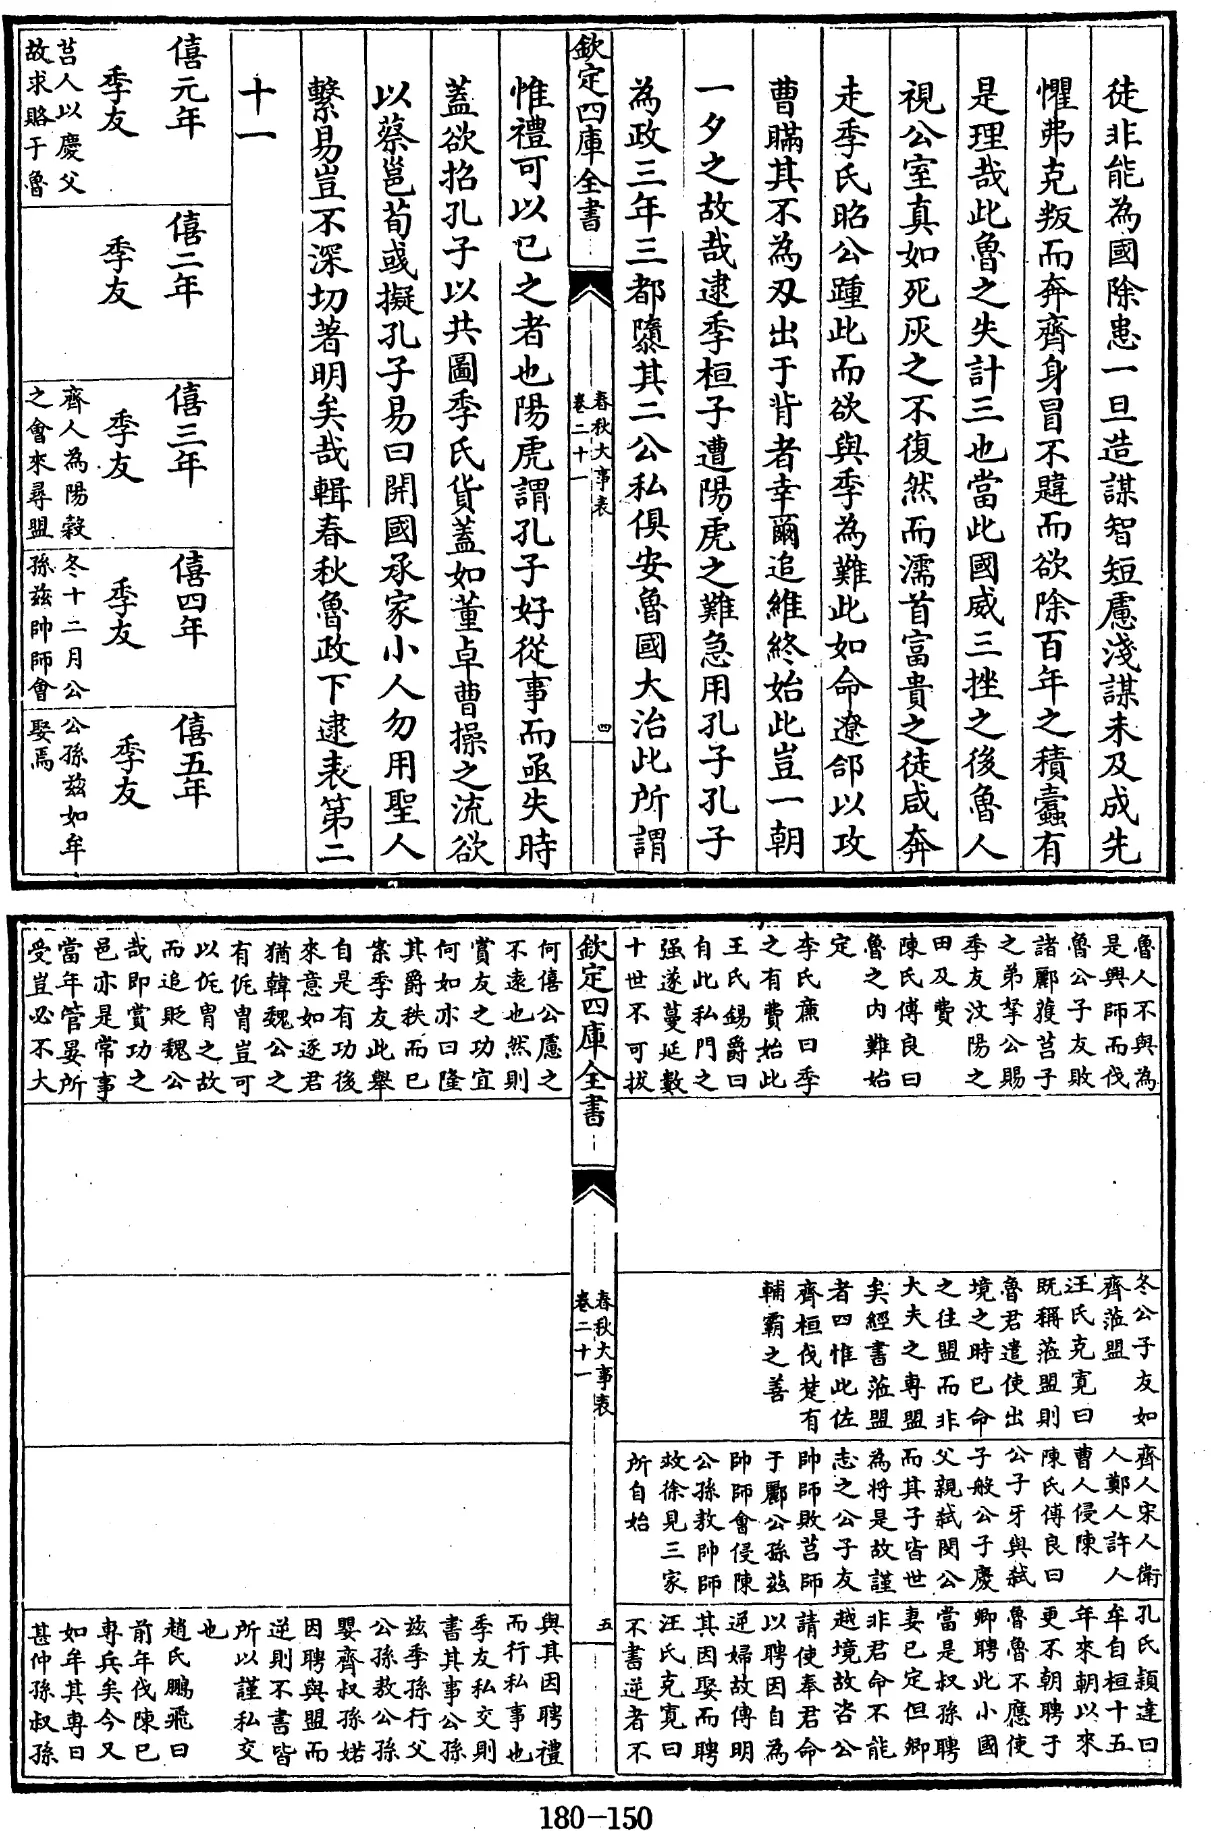 徒非能為國除患一旦造謀智短慮淺謀未及成先
懼弗克叛而奔齊身冒不韙而欲除百年之積蠹有
是理哉此魯之失計三也當此國威三挫之後魯人
視公室真如死灰之不復然而濡首富貴之徒咸奔
走季氏昭公踵此而欲與季為難此如命遼郃以攻
曹瞞其不為刄出于背者幸爾追維終始此豈一朝
一夕之故哉逮季桓子遭陽虎之難急用孔子孔子
為政三年三都隳其二公私俱安魯國大治此所謂
欽定四庫全書
春秋大事表
卷二十一
四
惟禮可以已之者也陽虎謂孔子好從事而亟失時
蓋欲招孔子以共圖季氏貨蓋如董卓曹操之流欲
以蔡邕荀彧擬孔子易曰開國承家小人勿用聖人
繫易豈不深切著明矣哉輯春秋魯政下逮表第二
十一
僖元年
季友
莒人以慶父
故求賂于魯
僖二年
季友
僖三年
季友
齊人為陽穀
之會來尋盟
僖四年
季友
冬十二月公
孫兹帥師會
僖五年
季友
公孫兹如牟
娶焉
魯人不與為
是興師而伐
魯公子友敗
諸酈獲莒子
之弟拏公賜
季友汶陽之
田及費
陳氏傅良曰
魯之内難始
定
李氏廉曰季
之有費始此
王氏錫爵曰
自此私門之
强遂蔓延數
十世不可拔
冬公子友如
齊涖盟
汪氏克寛曰
既稱涖盟則
魯君遣使出
境之時已命
之往盟而非
大夫之専盟
矣經書涖盟
者四惟此佐
齊桓伐楚有
輔霸之善
齊人宋人衛
人鄭人許人
曹人侵陳
陳氏傅良曰
公子牙與弑
子般公子慶
父親弑閔公
而其子皆世
為將是故謹
志之公子友
帥師敗莒師
于酈公孫兹
帥師會侵陳
公孫敖帥師
救徐見三家
所自始
孔氏穎達曰
牟自桓十五
年來朝以來
更不朝聘于
魯魯不應使
卿聘此小國
當是叔孫聘
妻已定但卿
非君命不能
越境故咨公
請使奉君命
以聘因自為
逆婦故傳明
其因娶而聘
汪氏克寛曰
不書逆者不
欽定四庫全書
春秋大事表
卷二十一
五
何僖公慮之
不遠也然則
賞友之功宜
何如亦曰隆
其爵秩而已
案季友此舉
自是有功後
來意如逐君
猶韓魏公之
有侂冑豈可
以侂冑之故
而追貶魏公
哉即賞功之
邑亦是常事
當年管晏所
受豈必不大
與其因聘禮
而行私事也
季友私交則
書其事公孫
兹季孫行父
公孫敖公孫
嬰齊叔孫婼
因聘與盟而
逆則不書皆
所以謹私交
也
趙氏鵬飛曰
前年伐陳已
専兵矣今又
如牟其専日
甚仲孫叔孫
180-150